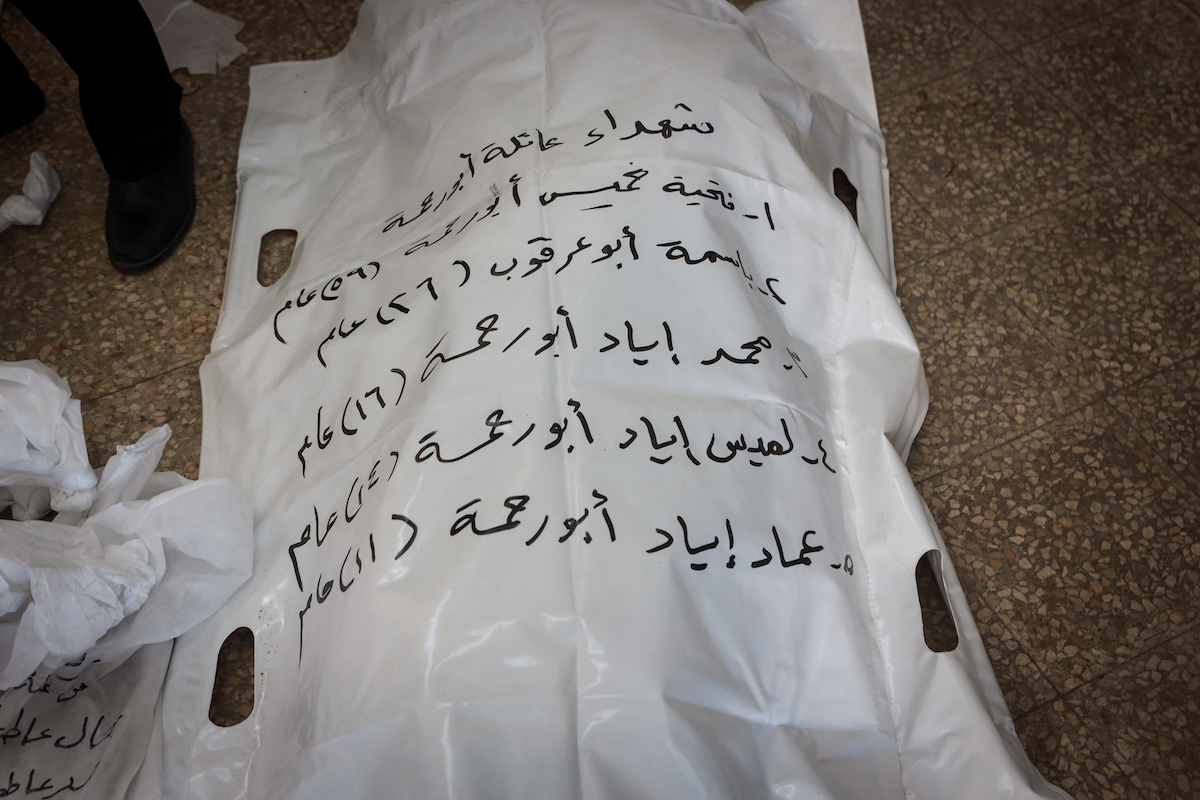 شهداء عائلة أبورحمة
١- فتحية خميس أبورحمة (٥٦) عام
٢- باسمة أبو عرقوب (٢٦) عام
٣- محمد إياد أبورحمة (١٦) عام
٤- لميس إياد أبورحمة (١٤) عام
٥- عماد إياد أبورحمة (١١) عام